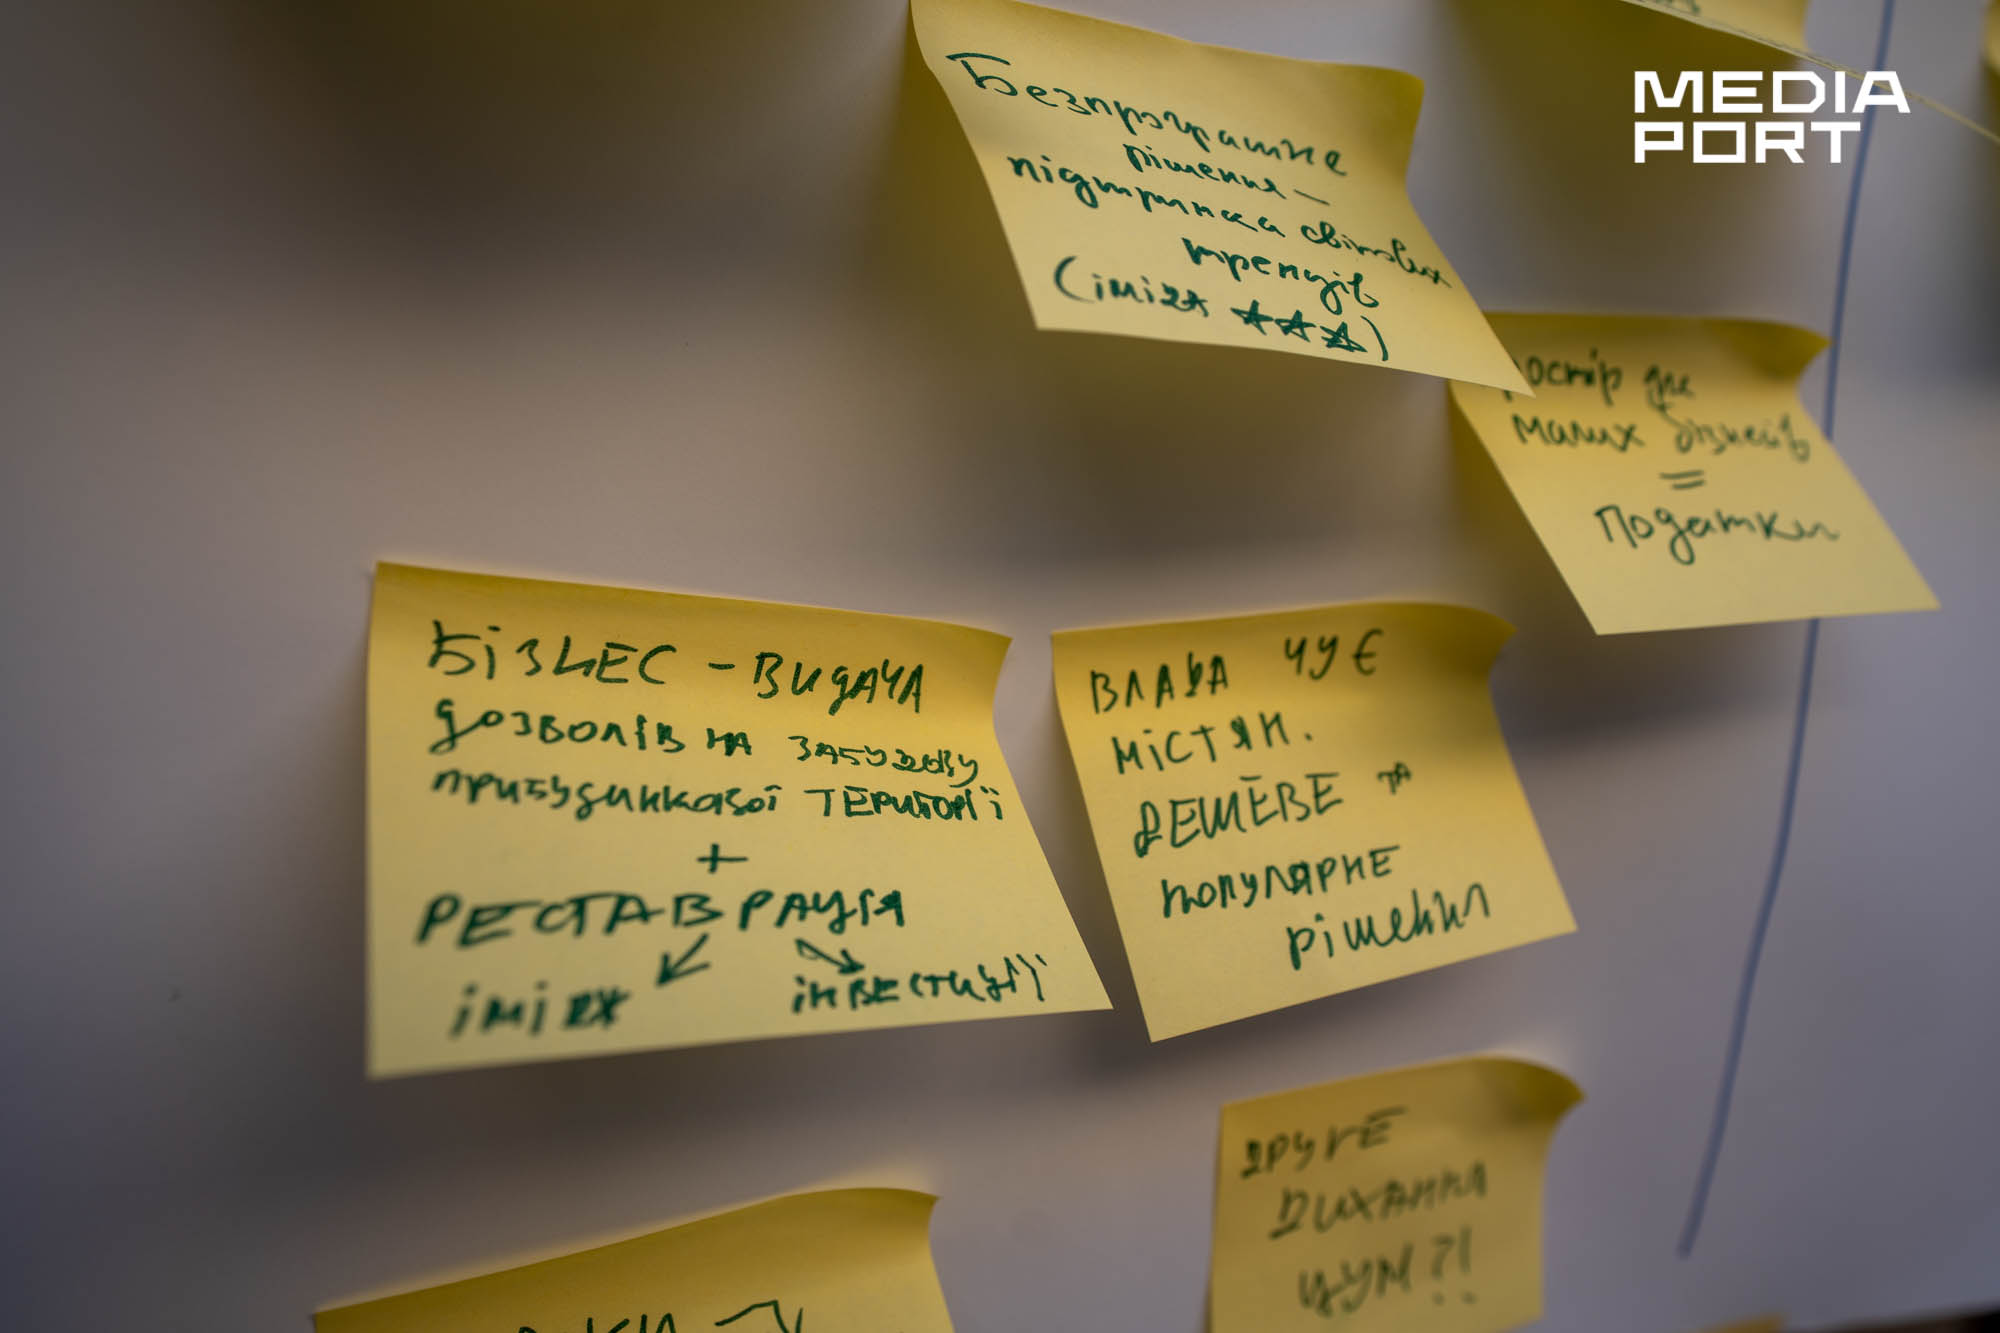 MEDIA
PORT
Безпрограшне
рішення –
підтримка світових
трендів
(імідж ★★★)
остір для
малих бізнесів
=
податки
БІЗНЕС – ВИДАЧА
ДОЗВОЛІВ НА ЗАБУДОВУ
ПРИБУДИНКОВОЇ ТЕРИТОРІЇ
+
РЕСТАВРАЦІЯ
ІМІДЖ ІНВЕСТИЦІЇ
ВЛАДА ЧУЄ
МІСТЯН.
ДЕШЕВЕ ТА
ПОПУЛЯРНЕ
рішення
ДРУГЕ
ДИХАННЯ
ЦУМ?!